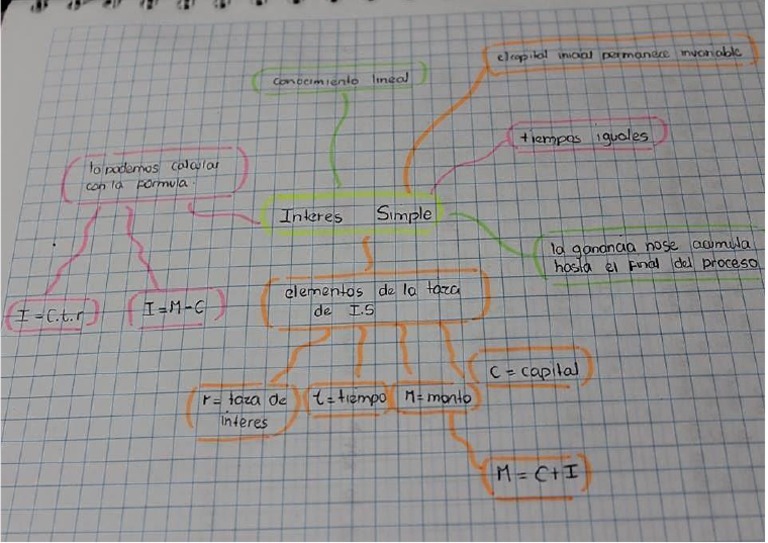 el capital inicial permanece invariable
conocimiento lineal
tiempos iguales
lo podemos calcular
con la formula.
Interes Simple
la ganancia nose acumula
hasta el final del proceso
elementos de la taza
de I.S
I = C.t.r
I = M - C
C = capital
r = taza de
interes
t = tiempo
M = monto
M = C + I